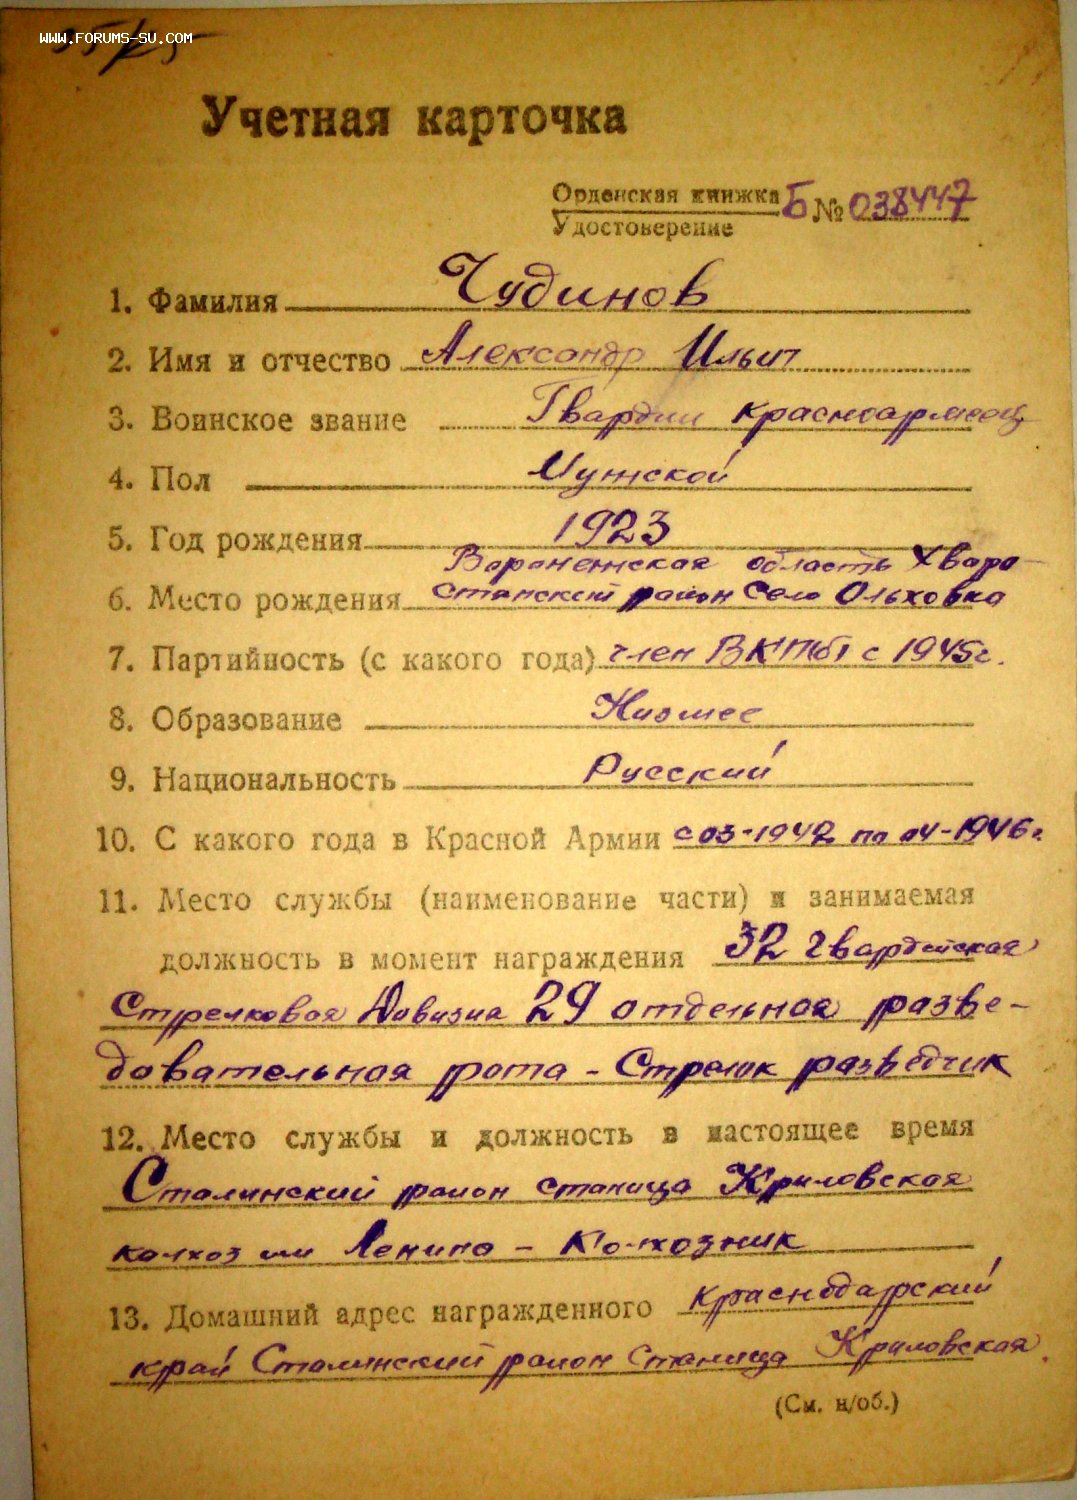 WWW.FORUMS-SU.COM
Учетная карточка
Орденская книжка Б № 038447
Удостоверение
1. Фамилия Чудинов
2. Имя и отчество Александр Ильич
3. Воинское звание Гвардии красноармеец
4. Пол Мужской
5. Год рождения 1923
Вороненжская область Хваро-
6. Место рождения станский район село Ольховка
7. Партийность (с какого года) член ВКП(б) с 1945г.
8. Образование Низшее
9. Национальность Русский
10. С какого года в Красной Армии с 03-1942 по 04-1946г.
11. Место службы (наименование части) и занимаемая
должность в момент награждения 32 гвардейская
Стрелковая Дивизиа 29 отдельная разве-
довательная рота - Стрелок разведчик
12. Место службы и должность в настоящее время
Сталинский район станица Криловская
колхоз им Ленина - Колхозник
13. Домашний адрес награжденного Краснодарский
край Сталинский район станица Криловская.
(См. н/об.)